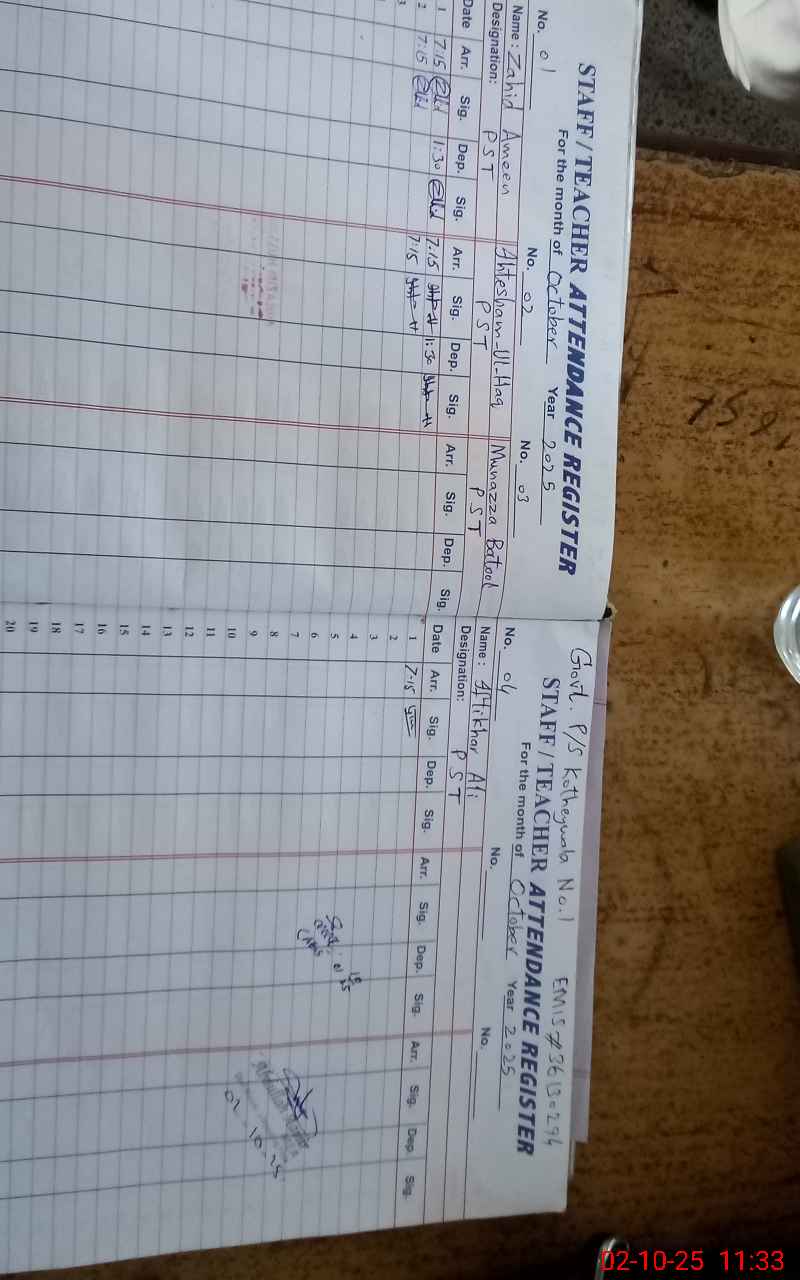 STAFF / TEACHER ATTENDANCE REGISTER
For the month of October Year 2025
No. 01 No. 02 No. 03
Name : Zahid Ameen Ahtesham-Ul-Haq Munazza Batool
Designation: PST PST PST
Date Arr. Sig. Dep. Sig. Arr. Sig. Dep. Sig. Arr. Sig. Dep. Sig.
1 7.15 1:30 7.15 1:30
2 7:15 7:15
3
Govt. P/S Kotheywala No.1 EMIS # 36130294
STAFF / TEACHER ATTENDANCE REGISTER
For the month of October Year 2025
No. 04 No. No.
Name : Iftikhar Ali
Designation: PST
Date Arr. Sig. Dep. Sig. Arr. Sig. Dep. Sig. Arr. Sig. Dep. Sig.
1 7-15
2
3
4
5
6
7
8
9
10
11
12
13
14
15
16
17
18
19
20
02-10-25
02-10-25 11:33